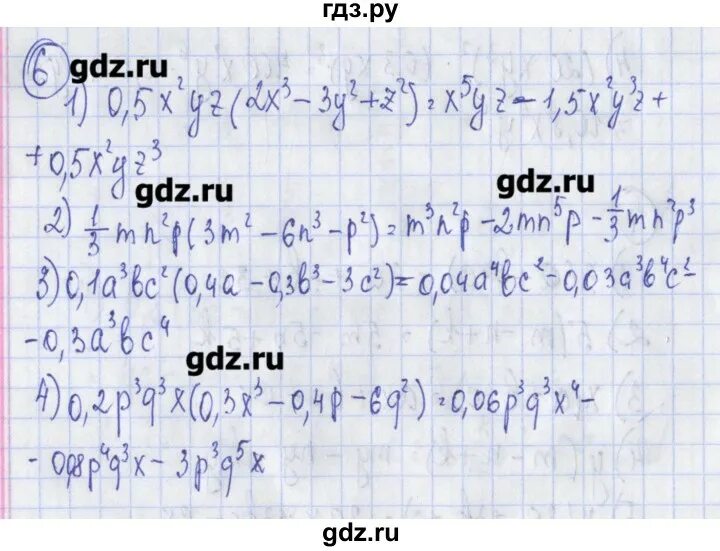 гдз.ру
6
gdz.ru
1) 0,5x²yz(2x³-3y²+z²)=x⁵yz-1,5x²y³z+
+0,5x²yz³
gdz.ru
gdz.ru
2) 1/3mn²p(3m²-6n³-p²)=m³n²p-2mn⁵p-1/3mn²p³
3) 0,1a³bc²(0,4a-0,3b³-3c²)=0,04a⁴bc²-0,03a³b⁴c²-
-0,3a³bc⁴
gdz.ru
4) 0,2p³q³x(0,3x³-0,4p-6q²)=0,06p³q³x⁴-
-0,08p⁴q³x-3p³q⁵x
gdz.ru